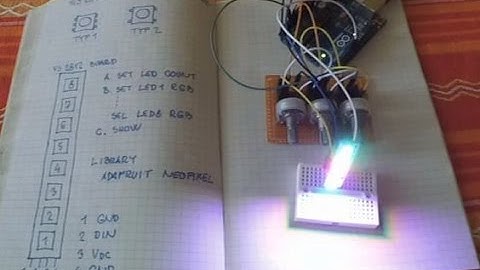 TYP 1
TYP 2
BOARD
8
7
6
5
4
3
2
1
A. SET LED COUNT
B. SET LED1 RGB
SEL LED8 RGB
C. SHOW
LIBRARY
ADAFRUIT NEOPIXEL
1 GND
2 DIN
3 VDC
4 GND